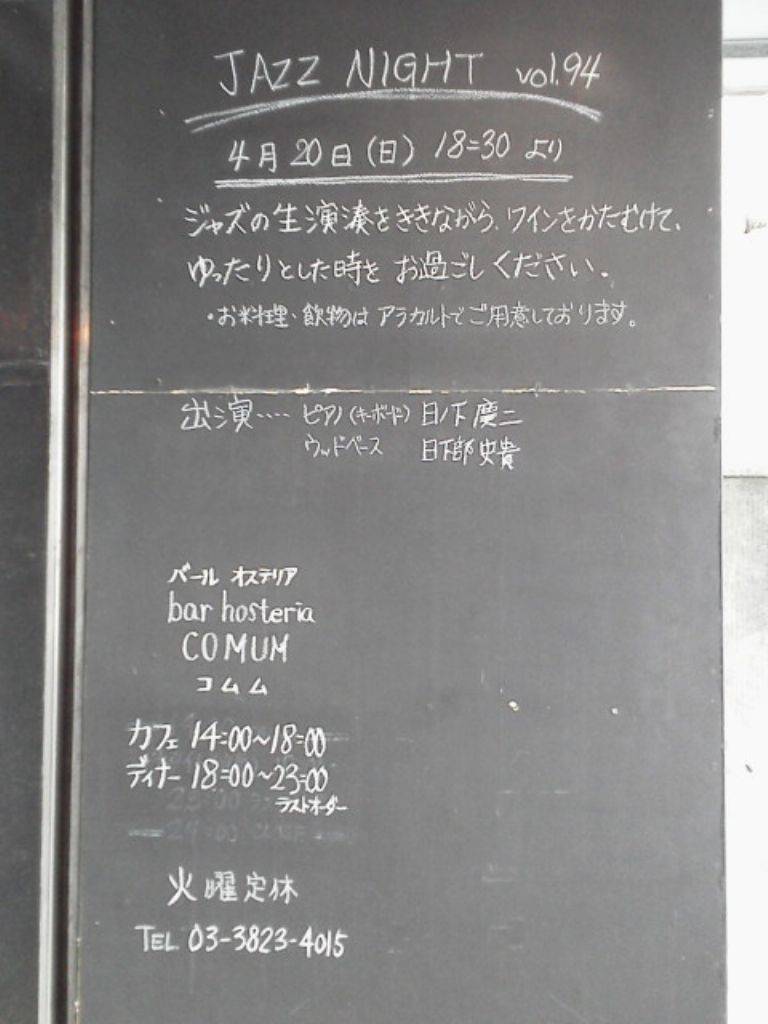 JAZZ NIGHT vol.94
4月20日(日) 18:30 より
ジャズの生演湊をききながら、ワインをかたむけて、
ゆったりとした時を お過ごしください。
・お料理、飲物は アラカルトでご用意しております。
出演‥‥ ピアノ(キーボード) 日ノ下 慶二
ウッドベース 日下部 史貴
バール オステリア
bar hosteria
COMUM
コムム
カフェ 14:00~18:00
ディナー 18:00~23:00
ラストオーダー
火曜定休
TEL 03-3823-4015